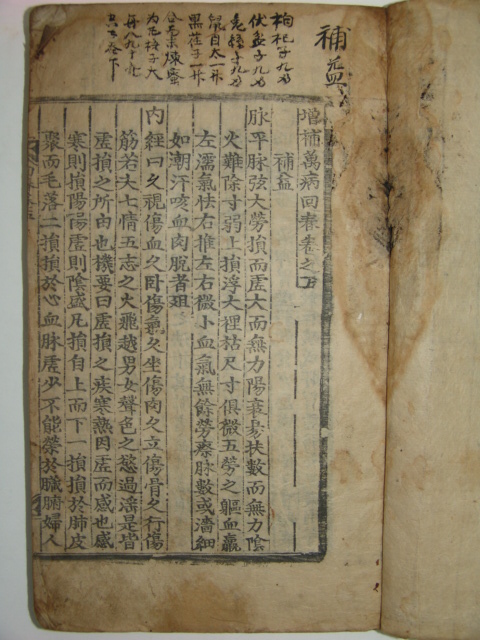 補益
枸杞子九刃
伏盆子九刃
兎絲子九刃
鼠目太一升
黑荏子一升
右末煉蜜
为丸梧子大
每八九十
增補萬病回春卷之下
補益
脉平脉弦大勞損而虛大而無力陽衰易扶數而無力陰
火難除寸弱上損浮大裡枯尺寸俱微五勞之軀血羸
左濡氣怯右推左右微小血氣無餘勞瘵脉數或濇細
如潮汗咳血肉脫者殂
內經曰久視傷血久臥傷氣久坐傷肉久立傷骨久行傷
筋若夫七情五志之火飛越男女聲色之慾過淫是皆
虛損之所由也機要曰虛損之疾寒熱因虛而感也感
寒則損陽陽虛則陰盛凡損自上而下一損損於肺皮
聚而毛落二損損於心血脉虛少不能榮於臟腑婦人